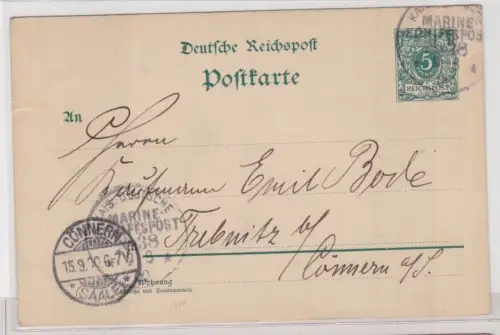 KAIS. DEUTSCHE
MARINE-
SCHIFFSPOST
38
5
REICHSPOST
Deutsche Reichspost
Postkarte
An
Herrn
Kaufmann Emil Bode
DEUTSCHE
MARINE-
SCHIFFSPOST
38
Trebnitz b/
CÖNNERN
15.9. 6-7
(SAALE)
Cönnern a/S.
Wohnung
(Straße und Hausnummer)